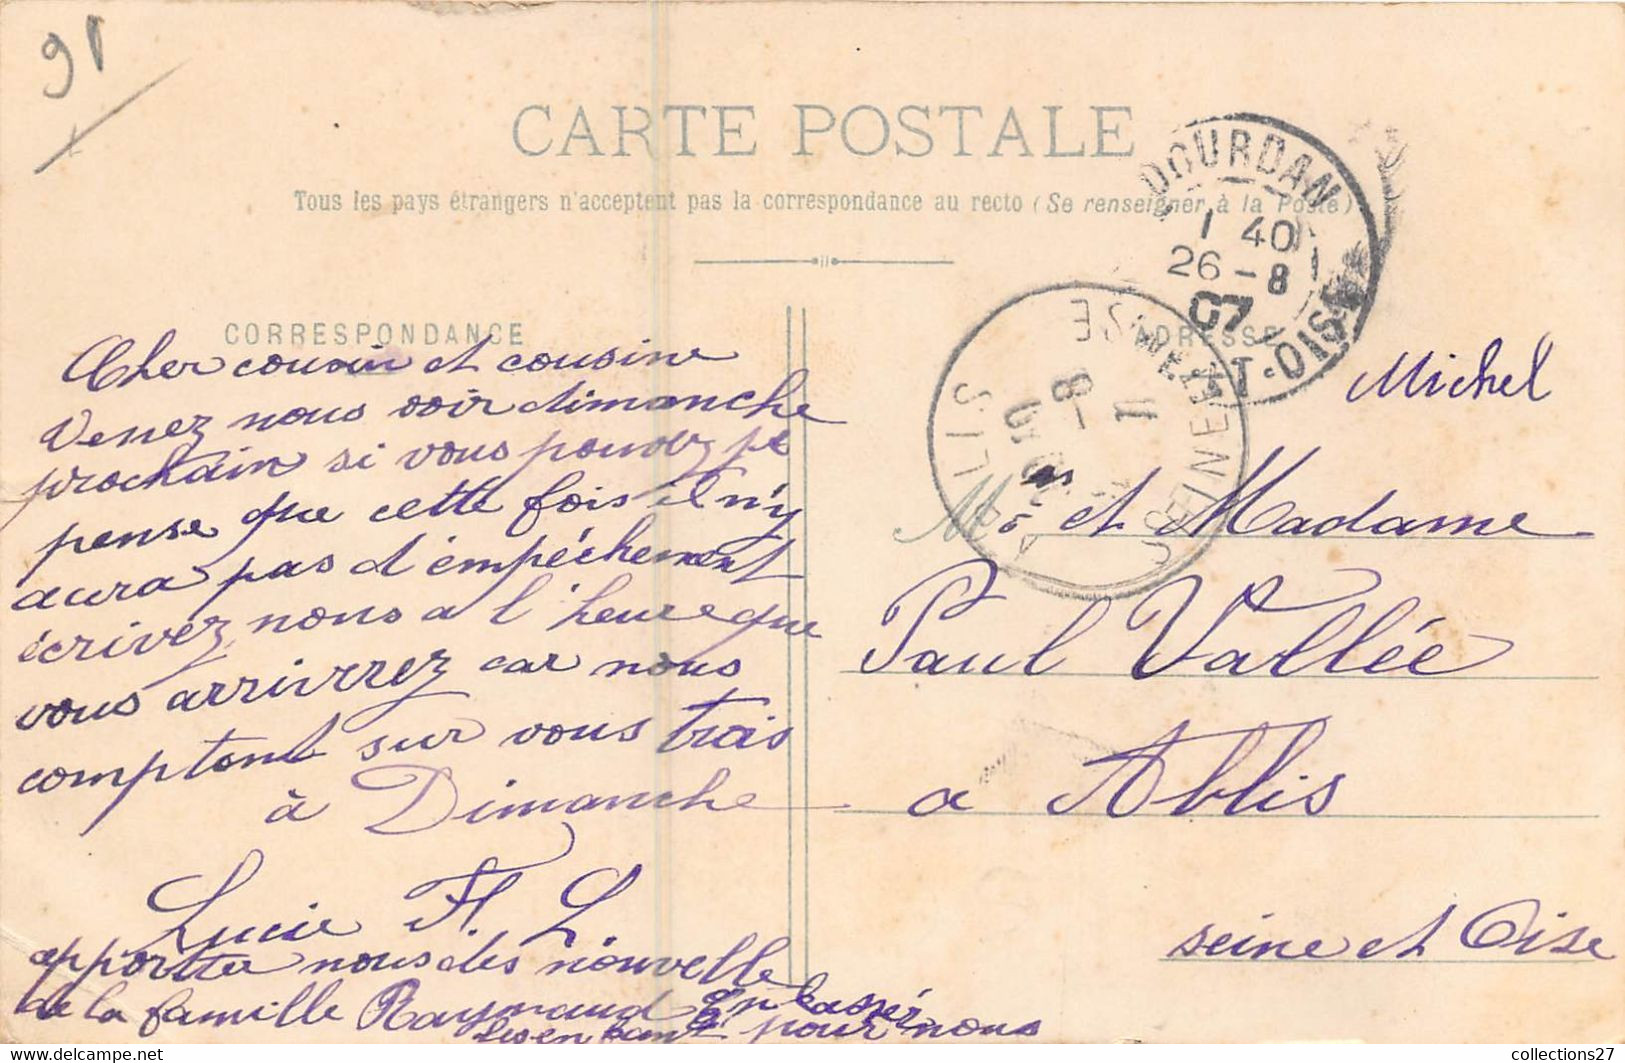 91
CARTE POSTALE
Tous les pays étrangers n'acceptent pas la correspondance au recto (Se renseigner à la Poste)
DOURDAN
1 40
26 - 8
07
ET-OISE
CORRESPONDANCE
Cher cousin et cousine
Venez nous voir dimanche
prochain si vous pouvez je
pense que cette fois il n'y
aura pas d'empéchement
écrivez nous a l'heure que
vous arriverez car nous
comptons sur vous trois
à Dimanche
Lucie H. L.
apportez nous des nouvelle
de la famille Raymaud Embassér
les enfants pour nous
ADRESSE
ABLIS
SEINE ET OISE
Michel
Mr et Madame
Paul Vallée
a Ablis
seine et Oise
collections27